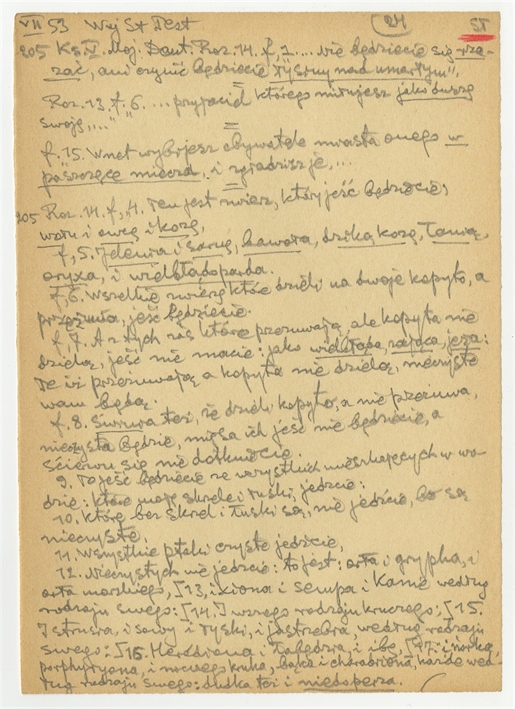 VII 53 Wuj St Test 24 ST
205 Ks. V. Moj. Deut. Roz. 14. f. 1. ... nie będziecie się rze-
zać, ani czynić będziecie łysiny nad umarłym",
Roz. 13. f. 6. ... przyjaciel którego miłujesz jako duszę
swoję,..."
f. 15. Wnet wybijesz obywatele miasta onego w
paszczęce miecza, i zgładzisz je,...
205 Roz. 14. f. 4. Ten jest zwierz, który jeść będziecie,
wołu i owcę i kozę,
f. 5. Jelenia i sarnę, bawoła, dziką kozę,
oryxa, i wielbłądoparda.
f. 6. Wszelkie zwierzę które dzieli na dwoje kopyto, a
przeżuwa, jeść będziecie.
f. 7. A z tych zaś które przeżuwają, ale kopyta nie
dzielą, jeść nie macie: jako wielbłąda, zająca, jeża:
te iż przeżuwają a kopyta nie dzielą, nieczyste
wam będą.
f. 8. Świnia też, iż dzieli kopyto, a nie przeżuwa,
nieczysta będzie, mięsa ich jeść nie będziecie, a
ścierwu się nie dotkniecie.
9. To jeść będziecie ze wszystkich mieszkających w wo-
dzie: które mają skrzele i łuski, jedzcie:
10. Które bez skrzel i łuski są, nie jedzcie, bo są
nieczyste.
11. Wszystkie ptaki czyste jedzcie,
12. Nieczystych nie jedzcie: to jest: orła i grypha, i
orła morskiego, [13. ixiona i sempa i kanię według
rodzaju swego: [14.] wszego rodzaju kruczego: [15.
I strusia, i sowy i łyski, i jastrzęba, według rodzaju
swego: [16. Herodiona i łabędzia, i ibę, [17. i norka,
porphyryona, i nocnego kruka, bąka i charadriona, każde wed-
ług rodzaju swego: dudka też i niedoperza.